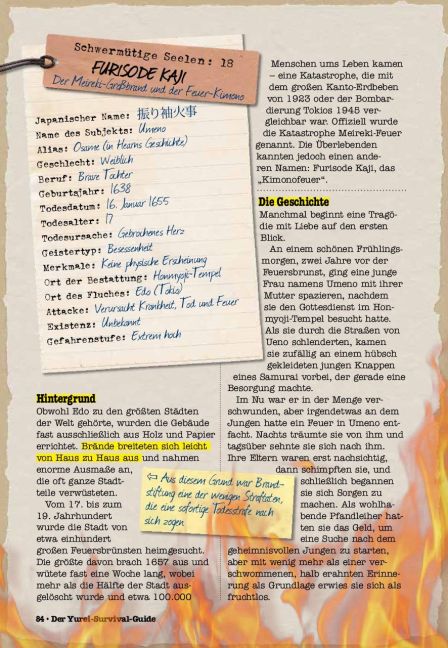 Schwermütige Seelen: 18
FURISODE KAJI
Der Meireki-Großbrand und der Feuer-Kimono
Japanischer Name: 振り袖火事
Name des Subjekts: Umeno
Alias: Osame (in Hearns Geschichte)
Geschlecht: Weiblich
Beruf: Brave Tochter
Geburtsjahr: 1638
Todesdatum: 16. Januar 1655
Todesalter: 17
Todesursache: Gebrochenes Herz
Geistertyp: Besessenheit
Merkmale: Keine physische Erscheinung
Ort der Bestattung: Honmyoji-Tempel
Ort des Fluches: Edo (Tokio)
Attacke: Verursacht Krankheit, Tod und Feuer
Existenz: Unbekannt
Gefahrenstufe: Extrem hoch
Hintergrund
Obwohl Edo zu den größten Städten
der Welt gehörte, wurden die Gebäude
fast ausschließlich aus Holz und Papier
errichtet. Brände breiteten sich leicht
von Haus zu Haus aus und nahmen
enorme Ausmaße an,
die oft ganze Stadt-
teile verwüsteten.
Vom 17. bis zum
19. Jahrhundert
wurde die Stadt von
etwa einhundert
großen Feuersbrünsten heimgesucht.
Die größte davon brach 1657 aus und
wütete fast eine Woche lang, wobei
mehr als die Hälfte der Stadt aus-
gelöscht wurde und etwa 100.000
⇦ Aus diesem Grund war Brand-
stiftung eine der wenigen Straftaten,
die eine sofortige Todesstrafe nach
sich zogen
Menschen ums Leben kamen
– eine Katastrophe, die mit
dem großen Kanto-Erdbeben
von 1923 oder der Bombar-
dierung Tokios 1945 ver-
gleichbar war. Offiziell wurde
die Katastrophe Meireki-Feuer
genannt. Die Überlebenden
kannten jedoch einen ande-
ren Namen: Furisode Kaji, das
„Kimonofeuer“.
Die Geschichte
Manchmal beginnt eine Tragö-
die mit Liebe auf den ersten
Blick.
An einem schönen Frühlings-
morgen, zwei Jahre vor der
Feuersbrunst, ging eine junge
Frau namens Umeno mit ihrer
Mutter spazieren, nachdem
sie den Gottesdienst im Hon-
myoji-Tempel besucht hatte.
Als sie durch die Straßen von
Ueno schlenderten, kamen
sie zufällig an einem hübsch
gekleideten jungen Knappen
eines Samurai vorbei, der gerade eine
Besorgung machte.
Im Nu war er in der Menge ver-
schwunden, aber irgendetwas an dem
Jungen hatte ein Feuer in Umeno ent-
facht. Nachts träumte sie von ihm und
tagsüber sehnte sie sich nach ihm.
Ihre Eltern waren erst nachsichtig,
dann schimpften sie, und
schließlich begannen
sie sich Sorgen zu
machen. Als wohlha-
bende Pfandleiher hat-
ten sie das Geld, um
eine Suche nach dem
geheimnisvollen Jungen zu starten,
aber mit wenig mehr als einer ver-
schwommenen, halb erahnten Erinne-
rung als Grundlage erwies sie sich als
fruchtlos.
84 • Der Yurei-Survival-Guide